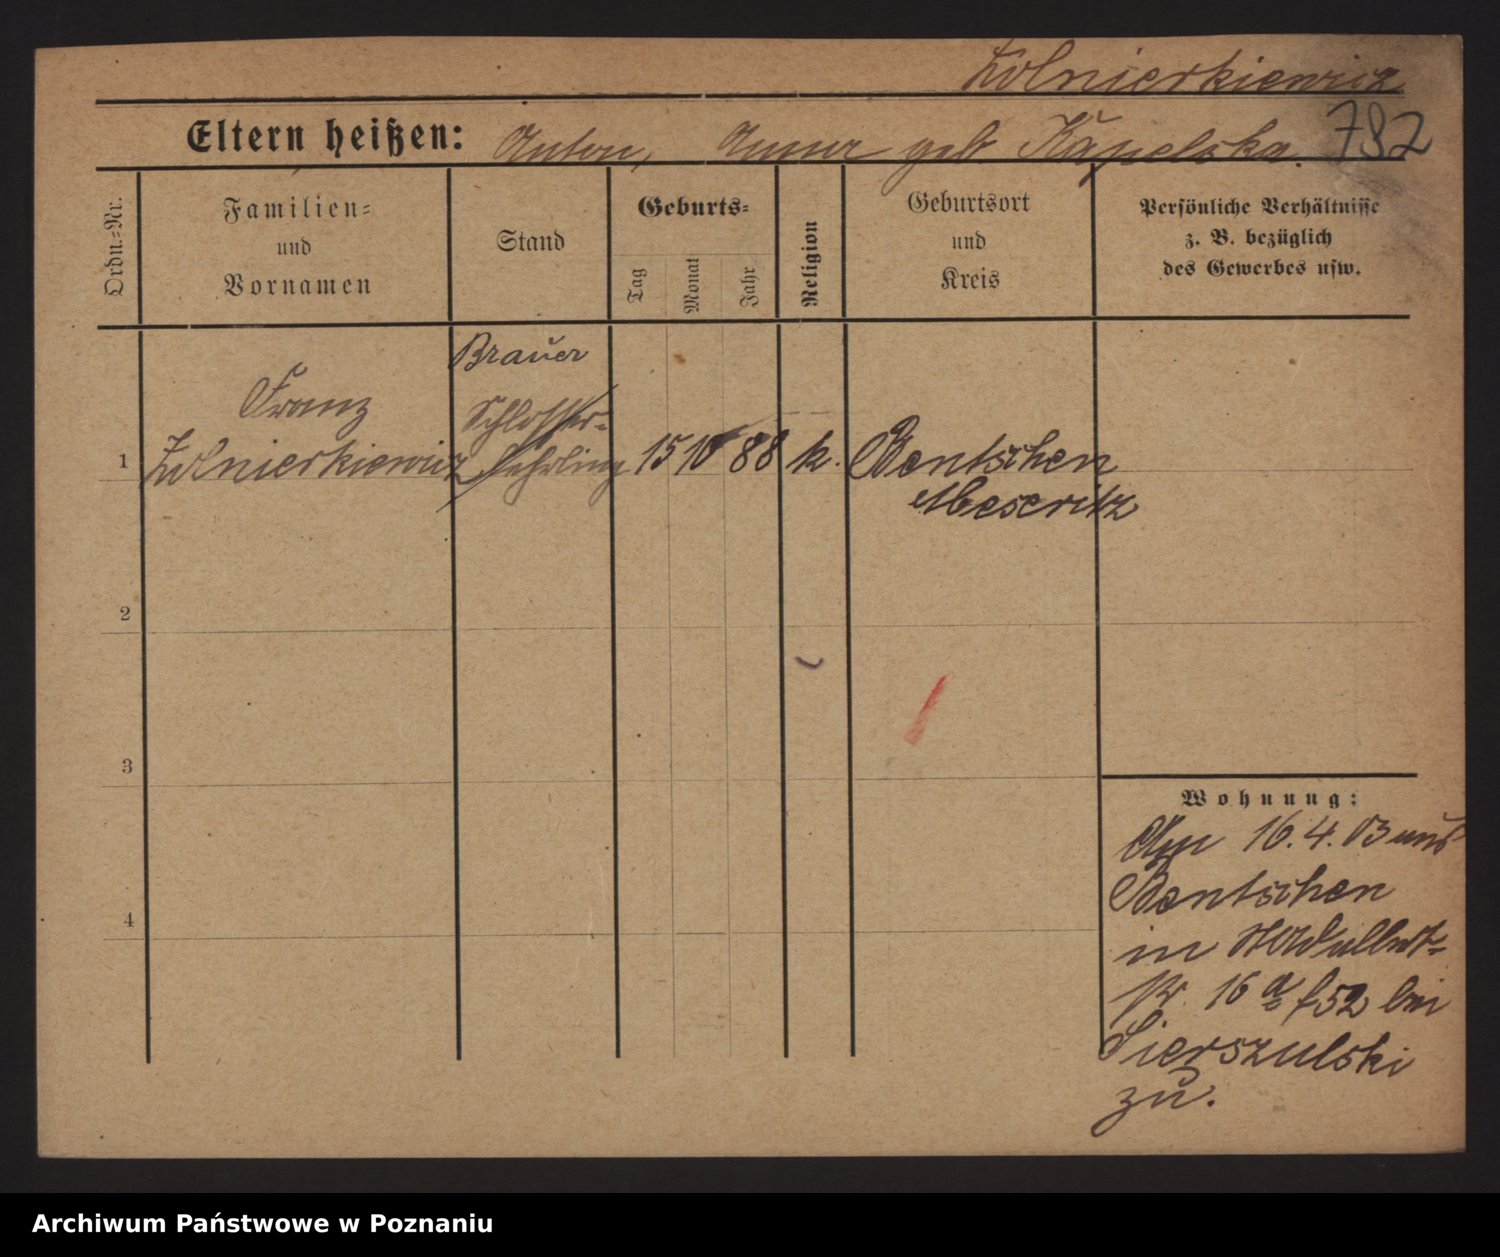 Zolnierkiewicz
Eltern heißen: Anton, Anna geb Kapelska. 782
Ordn.-Nr.
Familien-
und
Vornamen
Stand
Geburts-
Tag
Monat
Jahr
Religion
Geburtsort
und
Kreis
Persönliche Verhältnisse
z. B. bezüglich
des Gewerbes usw.
Brauer
Franz Schlosser-
1 Zolnierkiewicz Lehrling 15 10 88 k. Bentschen
Meseritz
2
3
4
Wohnung:
Am 16.4.03 aus
Bentschen
in
16 a bei
Sierszulski
zu.
Archiwum Państwowe w Poznaniu